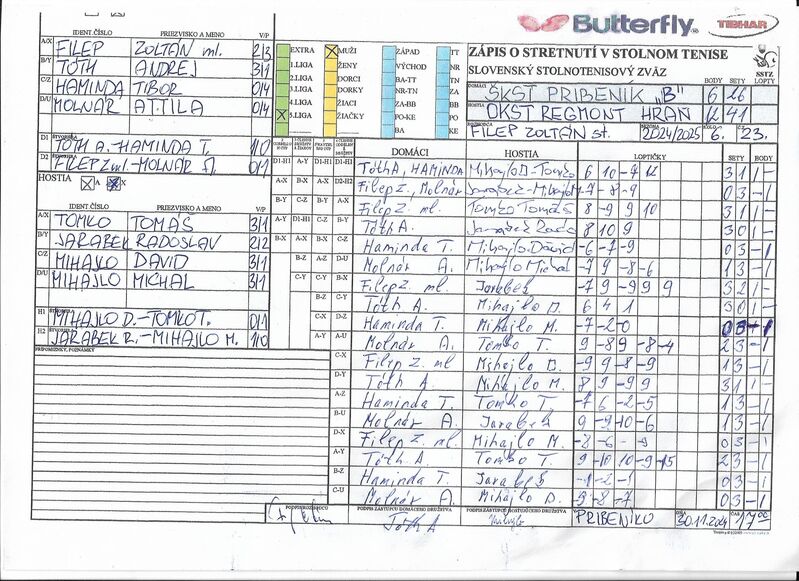 Butterfly
TIBHAR
ZÁPIS O STRETNUTÍ V STOLNOM TENISE
SLOVENSKÝ STOLNOTENISOVÝ ZVÄZ
SSTZ
DOMÁCI BODY SETY LOPTY
ŠKST PRIBENÍK „B" 6 26
HOSTIA
OKST REGMONT HRAŇ 12 41
ROZHODCA SEZÓNA
FILEP ZOLTÁN st. 2024/2025 6. 23.
IDENT.ČÍSLO PRIEZVISKO A MENO V/P
A/X FILEP ZOLTÁN ml. 2/3
B/Y TÓTH ANDREJ 3/1
C/Z HAMINDA TIBOR 0/4
D/U MOLNÁR ATTILA 0/4
D1 ŠTVORHRA TÓTH A.-HAMINDA T. 1/0
FILEP Z ml.-MOLNÁR A. 0/1
HOSTIA A X
IDENT.ČÍSLO PRIEZVISKO A MENO V/P
A/X TOMKO TOMÁŠ 3/1
B/Y JARABEK RADOSLAV 2/2
C/Z MIHAJLO DAVID 3/1
D/U MIHAJLO MICHAL 3/1
H1 MIHAJLO D.-TOMKO T. 0/1
H2 JARABEK R.-MIHAJLO M. 1/0
PRIPOMIENKY, POZNÁMKY
EXTRA
1.LIGA
2.LIGA
3.LIGA
4.LIGA
5.LIGA
MUŽI
ŽENY
DORCI
DORKY
ŽIACI
ŽIAČKY
ZÁPAD
VÝCHOD
BA-TT
NR-TN
ZA-BB
PO-KE
BA
TT
NR
TN
ZA
BB
PO
KE
DOMÁCI HOSTIA LOPTIČKY SETY BODY
D1-H1 A-Y D1-H1 D1-H1 Tóth A, HAMINDA Mihajlo D-Tomko 6 10 -7 12 3 1 1 -
A-X B-X A-X D2-H2 Filep Z., Molnár Jarabek-Mihajlo -7 -8 -9 0 3 - 1
B-Y C-Z B-Y A-X Filep Z. ml. Tomko Tomáš 8 -9 9 10 3 1 1 -
C-Z B-Y Tóth A. Jarabek Rado 8 10 9 3 0 1 -
A-Y D1-H1 C-Z Haminda T. Mihajlo David -6 -7 -9 0 3 - 1
B-X A-X D/U Molnár A. Mihajlo Michal -7 9 -8 -6 1 3 - 1
B-Z A-Z Filep Z. ml Jarabek -7 9 -9 9 9 3 2 1
C-Y B-Z Tóth A. Mihajlo D. 6 4 1 3 0 1 -
C-X D-Z Haminda T. Mihajlo M. -7 -2 -0 0 3 - 1
A-Y A-U Molnár A. Tomko T. 9 -8 9 -8 -4 2 3 - 1
C-X Filep Z. ml Mihajlo D. -9 9 -8 -9 1 3 - 1
D-Y Tóth A. Mihajlo M. 8 9 -9 9 3 1 1 -
A-Z Haminda T. Tomko T. -7 6 -2 -5 1 3 - 1
B-U Molnár A. Jarabek 9 -9 -10 -6 1 3 - 1
D-X Filep Z. ml. Mihajlo M. -8 -6 -9 0 3 - 1
A-Y Tóth A. Tomko T. 9 -10 10 -9 -15 2 3 - 1
B-Z Haminda T. Jarabek -1 -2 -1 0 3 - 1
C-U Molnár A. Mihajlo D. -9 -8 -7 0 3 - 1
PODPIS ROZHODCU PODPIS ZÁSTUPCU DOMÁCEHO DRUŽSTVA PODPIS ZÁSTUPCU HOSŤUJÚCEHO DRUŽSTVA DŇA ČAS
Tóth A PRIBENÍKU 30.11.2024 17 00